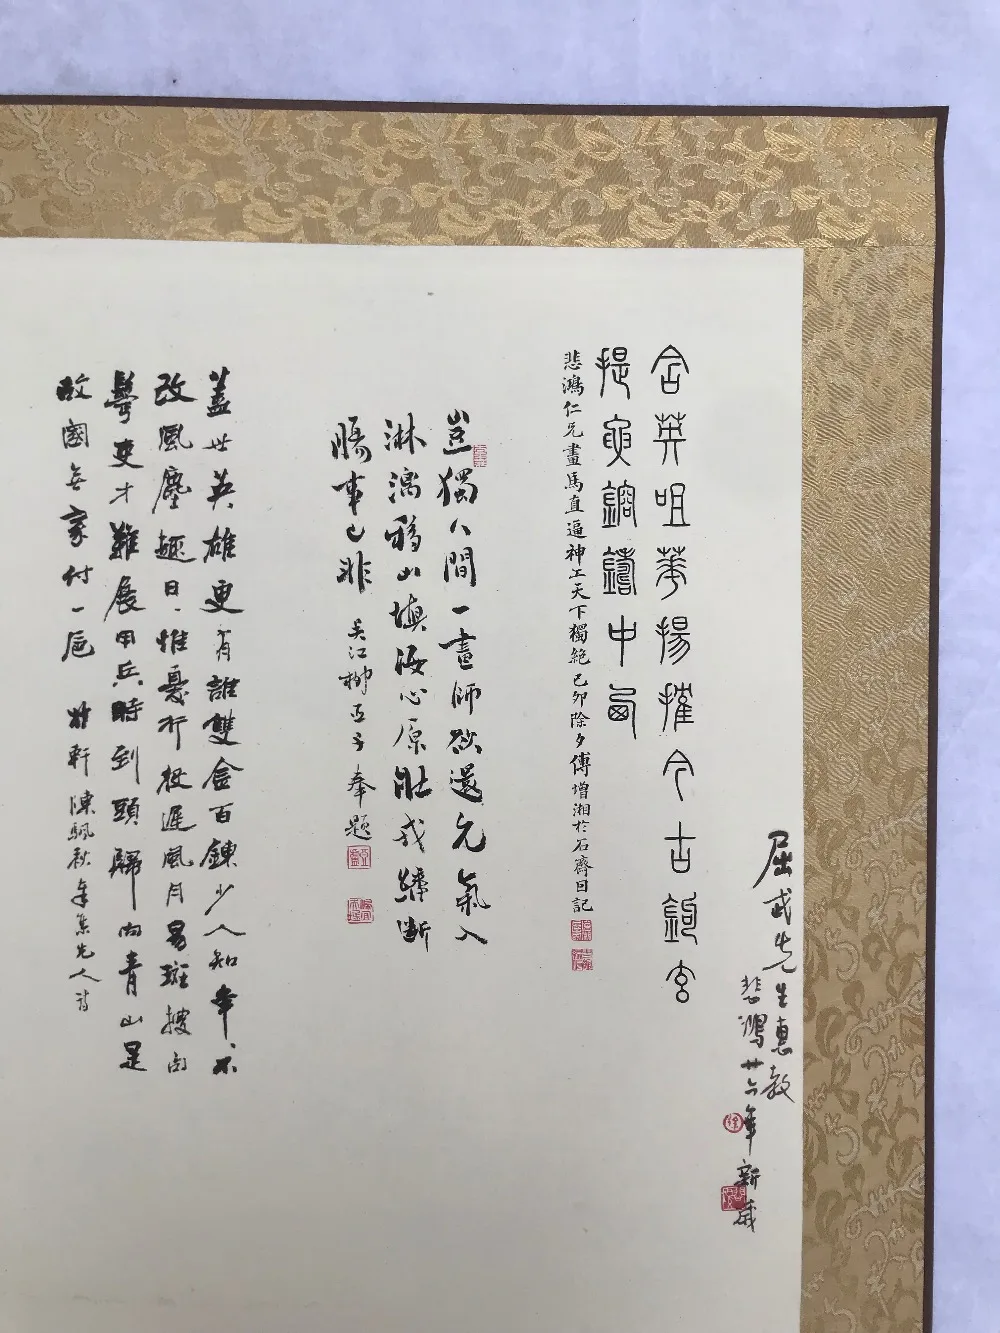 屈武先生惠教
悲鴻廿六年新歲
含英咀華揚搉今古鉤玄
提要鎔鑄中西
悲鴻仁兄畫馬直逼神工天下獨絕己卯除夕傅增湘於石齋日記
豈獨人間一畫師欲還元氣入
淋漓移山填海心原壯戎績斷
腸事已非 吳江柳亞子奉題
蓋世英雄更有誰雙金百鍊少人知年年不
改風塵趣日日惟憂行杖遲風月易斑搜句
鬢吏才難展用兵時到頭歸向青山是
故國無家付一巵 於軒陳